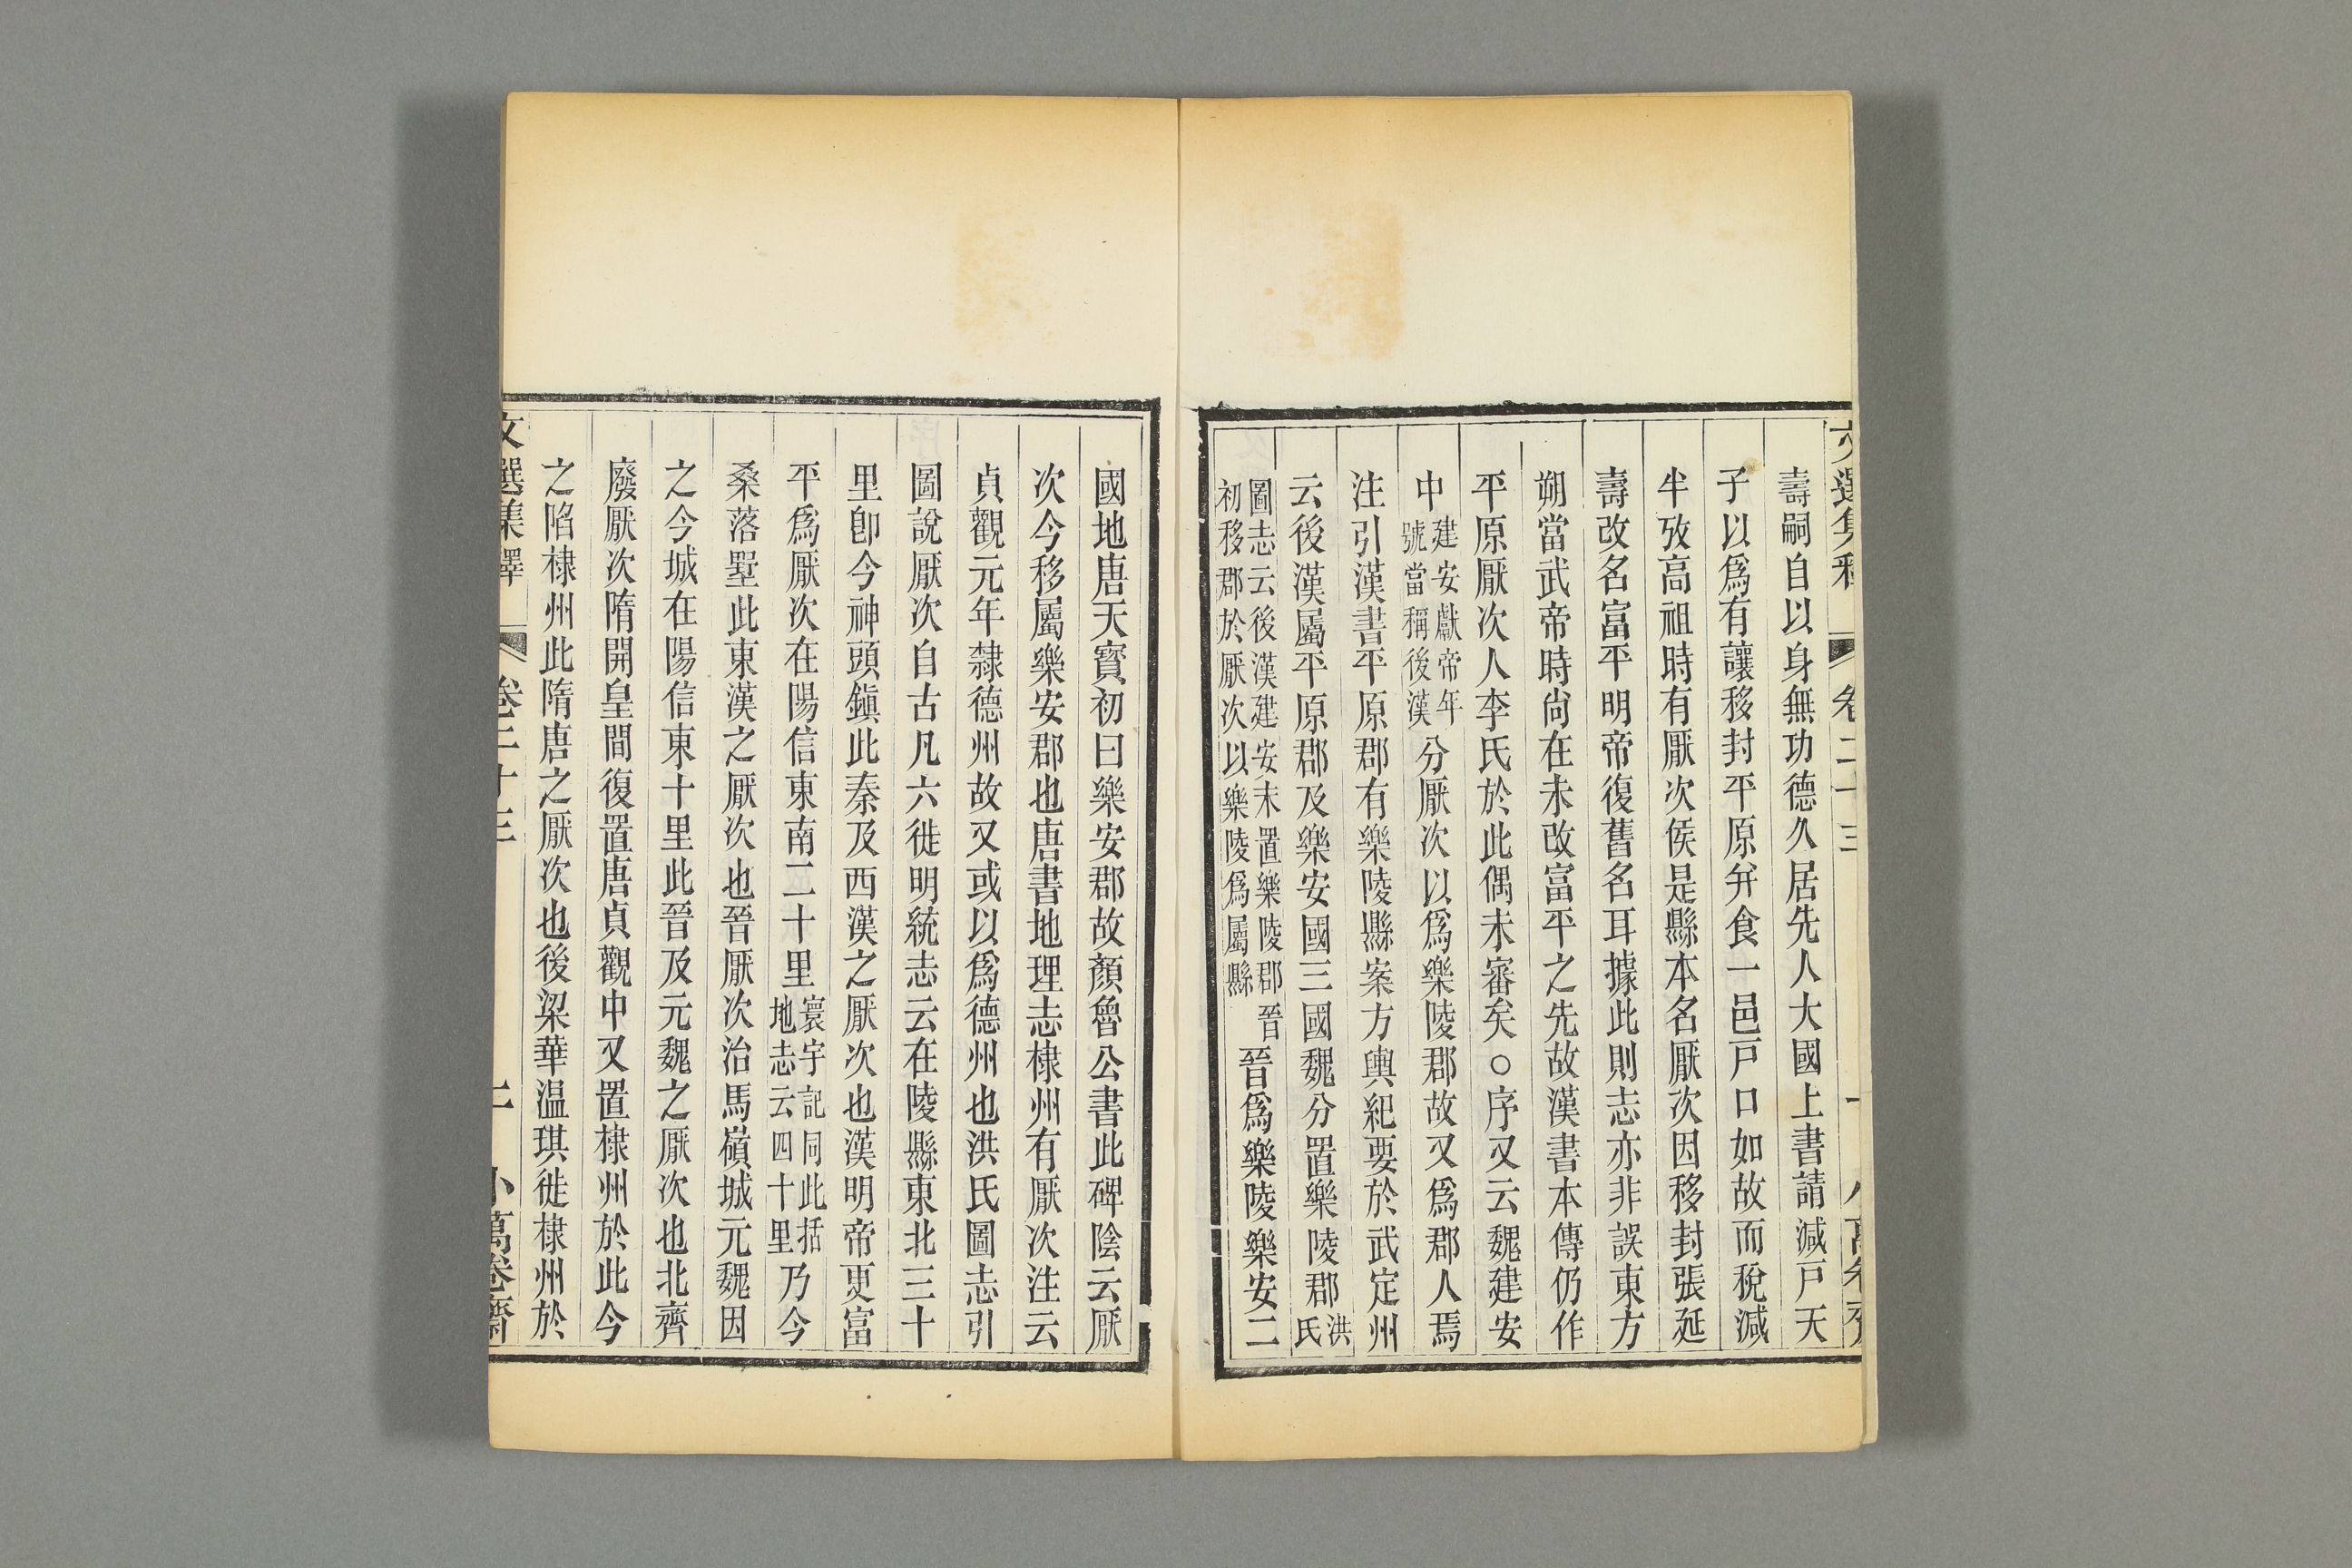 壽嗣自以身無功德久居先人大國上書請減戸天
子以爲有讓移封平原并食一邑戸口如故而稅減
半攷高祖時有厭次侯是縣本名厭次因移封張延
壽改名富平明帝復舊名耳據此則志亦非誤東方
朔當武帝時尙在未改富平之先故漢書本傳仍作
平原厭次人李氏於此偶未審矣○序又云魏建安
中建安獻帝年號當稱後漢分厭次以爲樂陵郡故又爲郡人焉
注引漢書平原郡有樂陵縣案方輿紀要於武定州
云後漢屬平原郡及樂安國三國魏分置樂陵郡洪氏
圖志云後漢建安末置樂陵郡晉初移郡於厭次以樂陵爲屬縣晉爲樂陵樂安二
國地唐天寶初曰樂安郡故顏魯公書此碑陰云厭
次今移屬樂安郡也唐書地理志棣州有厭次注云
貞觀元年隸德州故又或以爲德州也洪氏圖志引
圖說厭次自古凡六徙明統志云在陵縣東北三十
里卽今神頭鎭此秦及西漢之厭次也漢明帝更富
平爲厭次在陽信東南二十里寰宇記同此括地志云四十里乃今
桑落墅此東漢之厭次也晉厭次治馬嶺城元魏因
之今城在陽信東十里此晉及元魏之厭次也北齊
廢厭次隋開皇間復置唐貞觀中又置棣州於此今
之陷棣州此隋唐之厭次也後梁華温琪徙棣州於
文選集釋 卷二十三 二 小萬卷齋